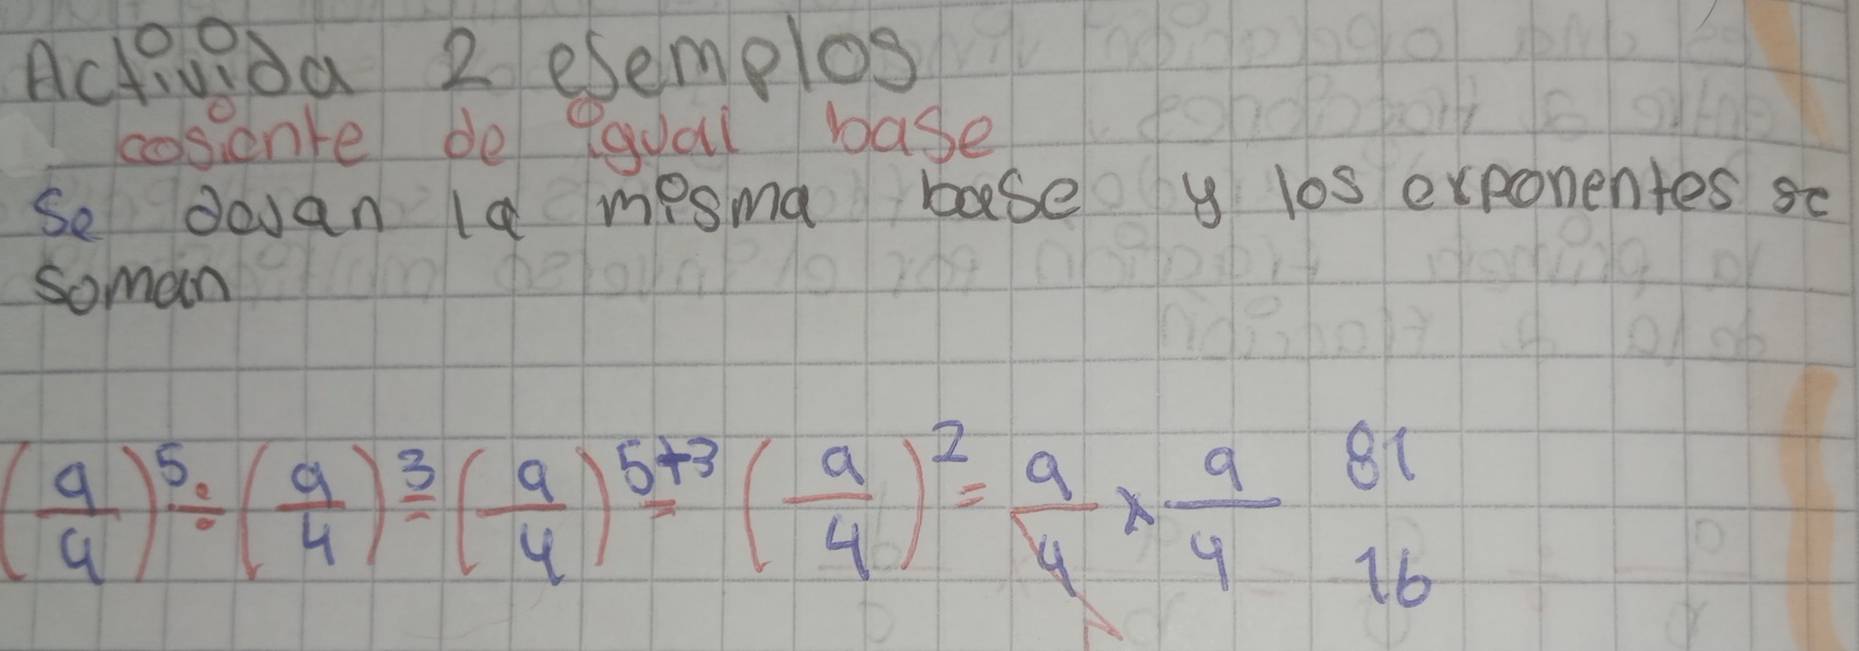 Activida 2 esemplos
cosiente de igual base
se dejan la misma base y los exponentes se
soman
(9/4)^5 ÷ (9/4)^3 = (9/4)^5+3 = (9/4)^2 = 9/4 x 9/4 81/16